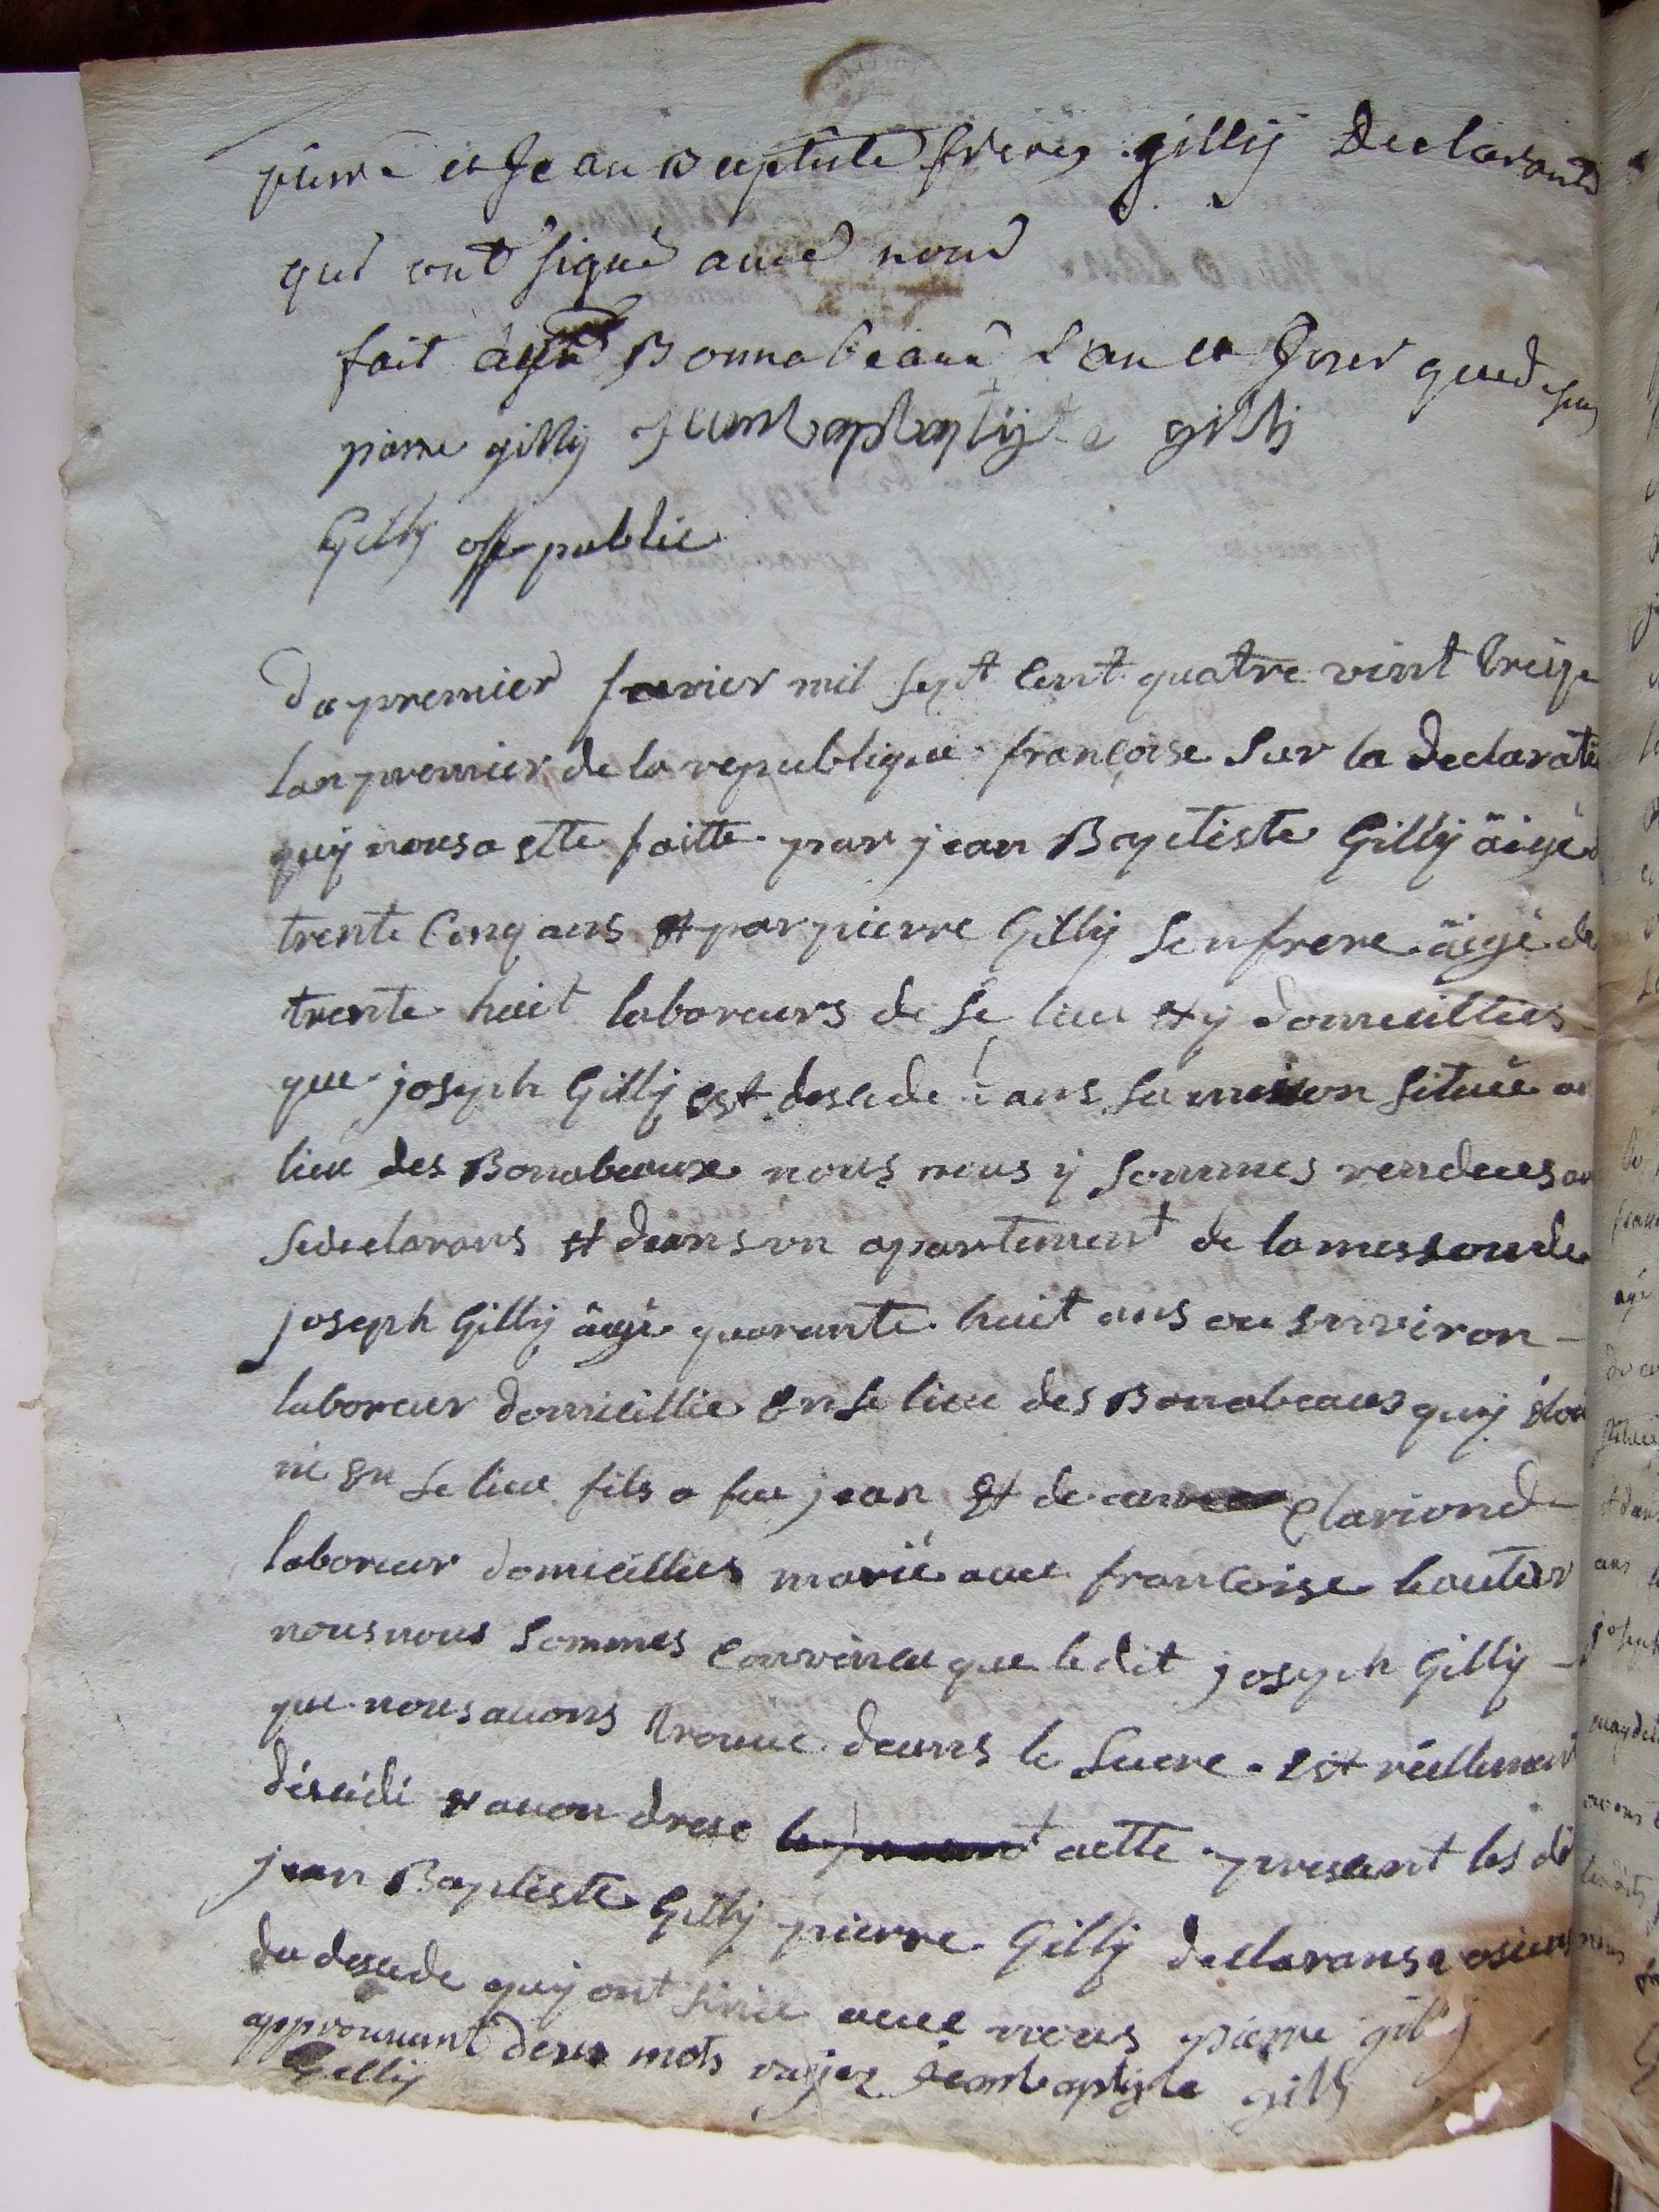 pierre et Jean Baptiste freres gilly Declarants
qui ont signé avec nous
fait Bonnabeaux l'an et Jour que desus
pierre gilly jeanbaptaptiste gilly
Gilly off public
Du premier fevrier mil sept cent quatre vint treize
lan premier de la republique francoise sur la declaratio
quy nous a ette faitte par jean Baptiste Gilly äigé
trente cinq ans et par pierre Gilly son frere äigé de
trente huit laboreurs de se lieu et y domicillies
que joseph Gilly est desede dans sa meison située au
lieu des Bonabeaux nous nous y sommes rendues au
sedeclarans et deans vn apartement de la messon de
joseph Gilly äigé quarante huit ans ou environ
laboreur domicillie en se lieu des Bonabeaus quy étoi
né en se lieu fils a feu jean et de Clariond
laboreur domicillies marié avec francoise
nous nous sommes convincu que ledit joseph Gilly
que nous avons trouvé deans le suere est réellement
désédé et avon drese le present aette present les di
jean Baptiste Gilly pierre Gilly declarans
du desede quy ont sinie avec nous pierre gilly
approuvant deux mots rayez jeanbaptiste gilly
Gilly